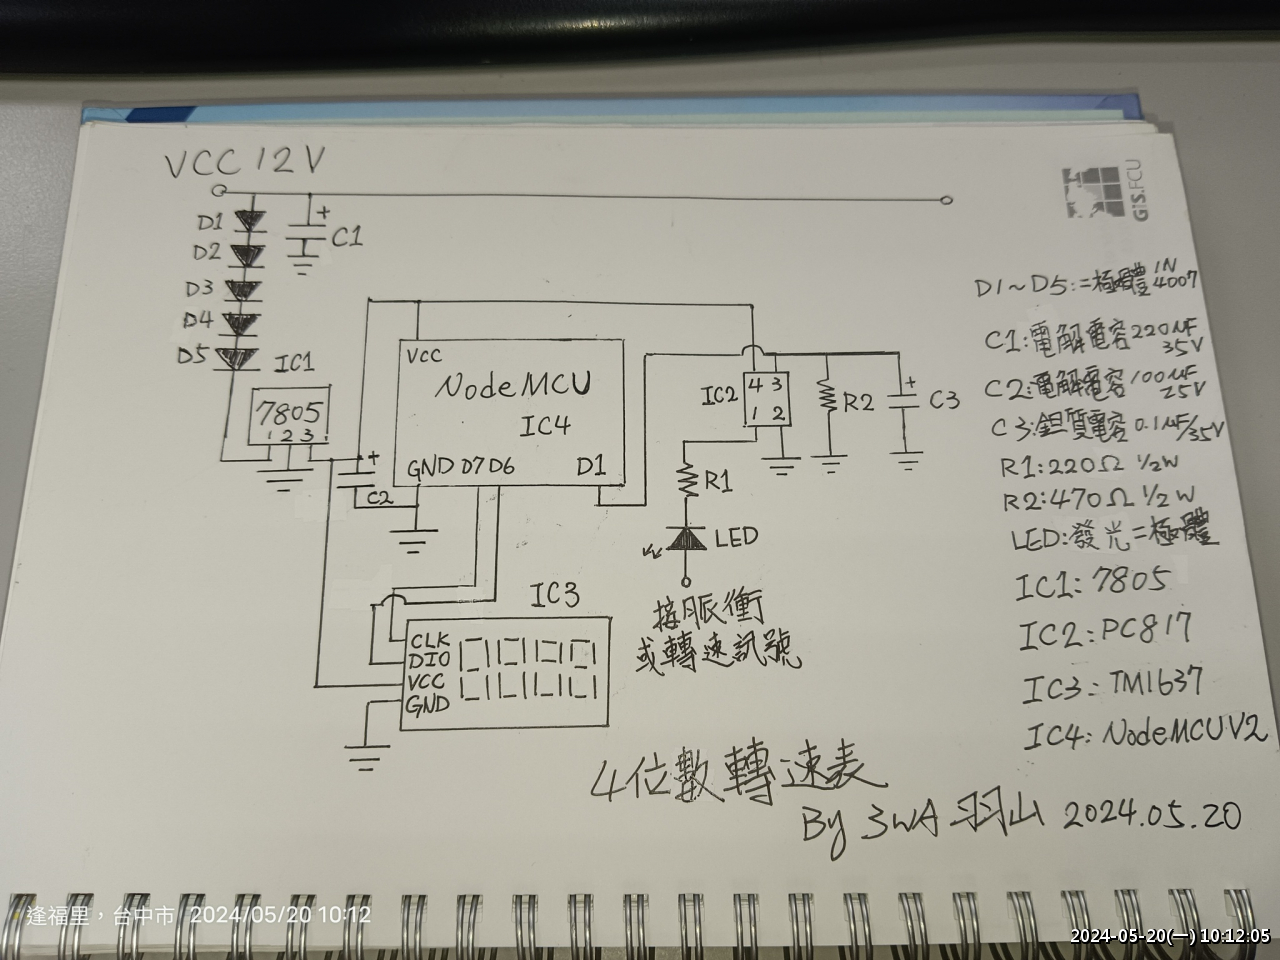 VCC 12V
GIS.FCU
D1
D2
D3
D4
D5
C1
IC1
7805
1 2 3
C2
VCC
NodeMCU
IC4
GND D7 D6
D1
IC2
4 3
1 2
R2
C3
R1
LED
接脈衝
或轉速訊號
IC3
CLK
DIO
VCC
GND
D1~D5:二極體 1N4007
C1:電解電容 220uF
35V
C2:電解電容 100uF
25V
C3:鉭質電容 0.1uF/35V
R1:220Ω 1/2W
R2:470Ω 1/2W
LED:發光二極體
IC1:7805
IC2:PC817
IC3:TM1637
IC4:NodeMCU V2
4位數轉速表
By 3WA 羽山 2024.05.20
逢福里，台中市 2024/05/20 10:12
2024-05-20(一) 10:12:05